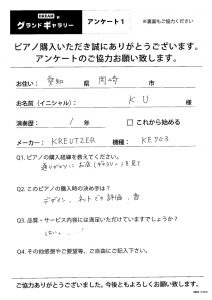 グランドギャラリー アンケート1 ※裏面もご協力ください
ピアノ購入いただき誠にありがとうございます。
アンケートのご協力お願い致します。
お住い： 愛知 県 岡崎
お名前（イニシャル）： K.U 様
演奏歴： 1 年 □これから始める
メーカー： KREUTZER 機種： KE703
Q1. ピアノ購入の経緯を教えてください。
通りがかりにお店（ギャラリー）を見て
Q2. このピアノの購入時の決め手は？
デザイン、ネットでの評価、音
Q3. 品質・サービス内容には満足いただけていますでしょうか？
はい。
Q4. その他感想やご要望等、ご自由にご記入下さい。
ご協力ありがとうございました。今後ともよろしくお願い致します。